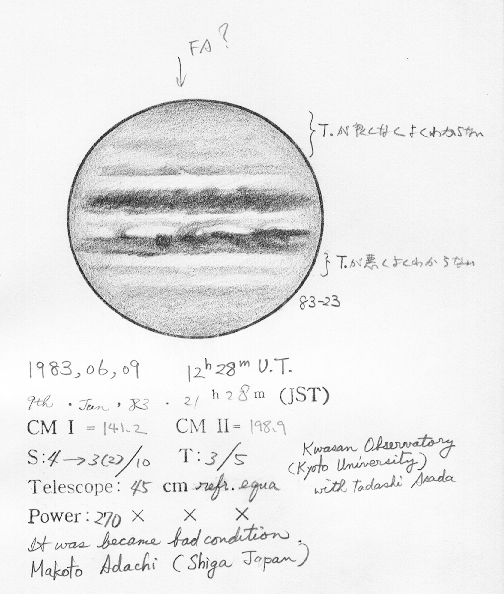 FA?
T.が良くなくよくわからない
T.が悪くよくわからない
83-23
1983,06,09 12h28m U.T.
9th. Jan, 83. 21h28m (JST)
CM I = 141.2 CM II = 198.9
S:4→3(2)/10 T:3/5
Telescope: 45 cm refr. equa
Power: 270 × × ×
It was became bad condition.
Makoto Adachi (Shiga Japan)
Kwasan Observatory
(Kyoto University)
with Tadashi Asada